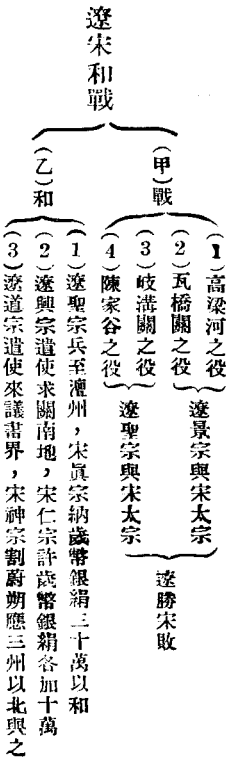 遼宋和戰
（甲）戰
（1）高梁河之役
（2）瓦橋關之役
遼景宗與宋太宗
（3）岐溝關之役
（4）陳家谷之役
遼聖宗與宋太宗
遼勝宋敗
（乙）和
（1）遼聖宗兵至澶州，宋眞宗納歲幣銀絹三十萬以和
（2）遼興宗遣使求關南地，宋仁宗許歲幣銀絹各加十萬
（3）遼道宗遣使來議畺界，宋神宗割蔚朔應三州以北與之